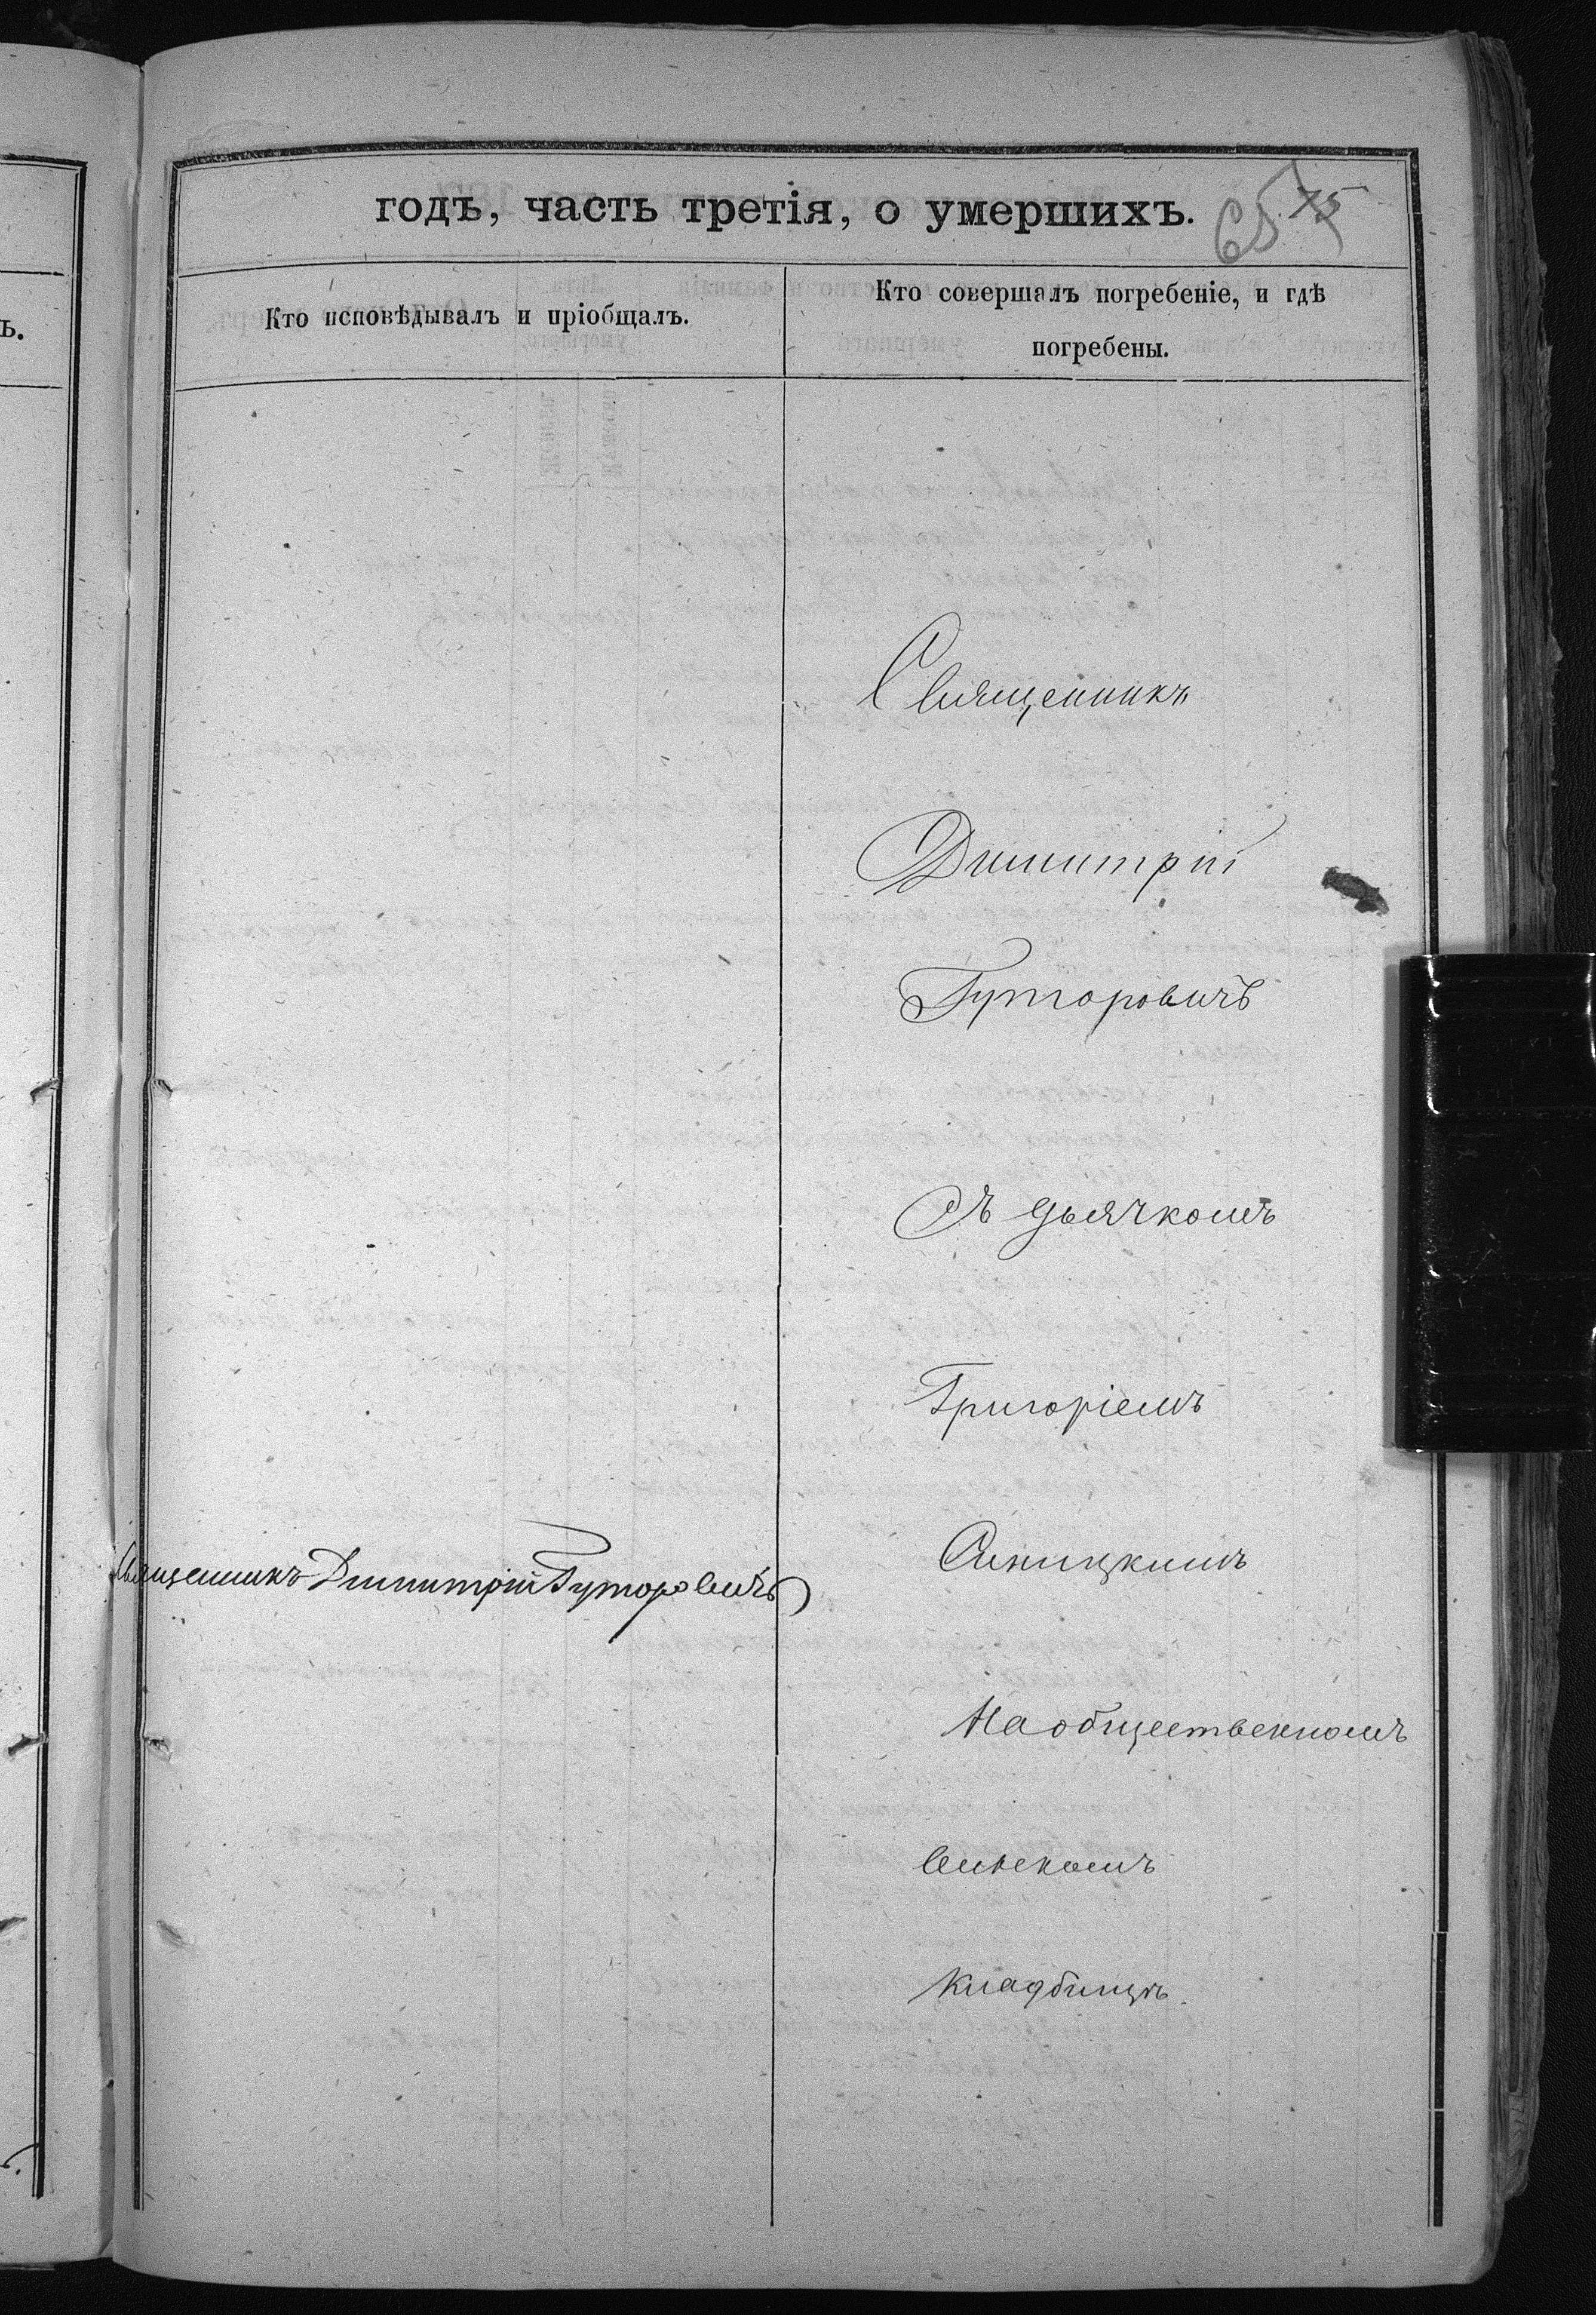 годъ, часть третія, о умершихъ.
65. 75
Кто исповѣдывалъ и пріобщалъ.
Кто совершалъ погребеніе, и гдѣ
погребены.
Священникъ
Димитрій
Гуторовичъ
Съ дьячкомъ
Григоріемъ
Синицкимъ
Священникъ Димитрій Гуторовичъ
На общественномъ
кладбищѣ.
ъ.